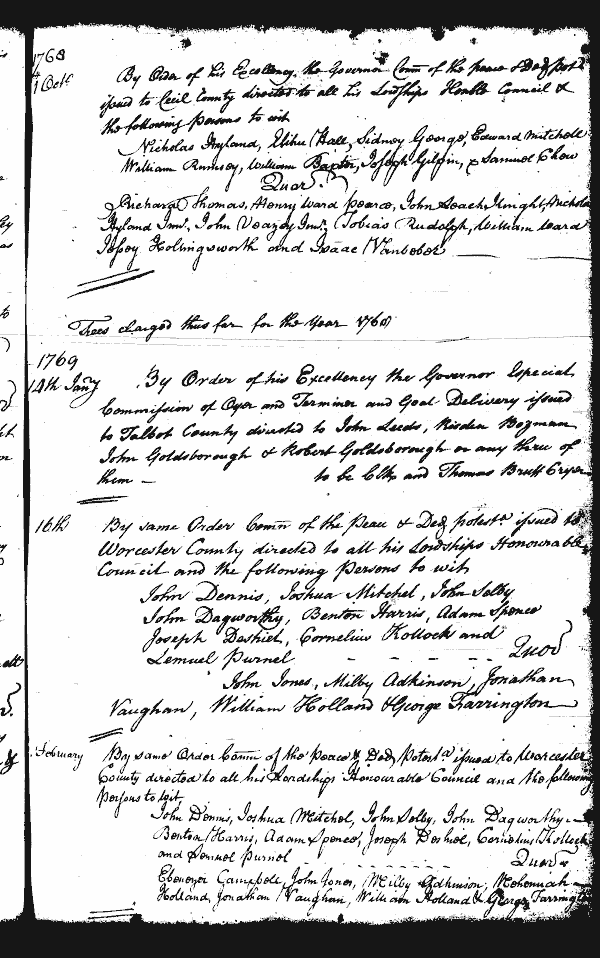 1768
1 Octr
By Order of his Excellency the Governor Comn of the peace & Ded potsta
issued to Cecil County directed to all his Lordships Honble Council &
the following Persons to wit
Nicholas Hyland, Elihu Hall, Sidney George, Edward Mitchell
William Rumsey, William Baxter, Joseph Gilpin, & Samuel Chew
Quor.
Richard Thomas, Henry Ward Pearce, John Leach Knight, Nicholas
Hyland Junr, John Veazey Junr, Tobias Rudolph, William Ward
Jessey Hollingsworth and Isaac Vanbeber
Fees charged thus far for the Year 1768
1769
14th Jany
By Order of his Excellency the Governor Especial
Commission of Oyer and Terminer and Goal Delivery issued
to Talbot County directed to John Leeds, Risden Bozman
John Goldsborough & Robert Goldsborough or any three of
them — to be Clk and Thomas Bruff Cryer
16th
By same Order Comn of the Peace & Ded potesta issued to
Worcester County directed to all his Lordships Honourable
Council and the following Persons to wit
John Dennis, Joshua Mitchel, John Selby
John Dagworthy, Benton Harris, Adam Spence
Joseph Dashiel, Cornelius Kollock and
Lemuel Purnel - - - - Quor
John Jones, Milby Adkinson, Jonathan
Vaughan, William Holland & George Farrington
February
By same Order Comn of the Peace & Ded Potesta issued to Worcester
County directed to all his Lordships Honourable Council and the following
Persons to Wit,
John Dennis, Joshua Mitchel, John Selby, John Dagworthy
Benton Harris, Adam Spence, Joseph Deshiel, Cornelius Kollock
and Lemuel Purnel - - - - Quor
Ebenezer Campbell, John Jones, Milby Adkinson, Nehemiah
Holland, Jonathan Vaughan, William Holland & George Farrington